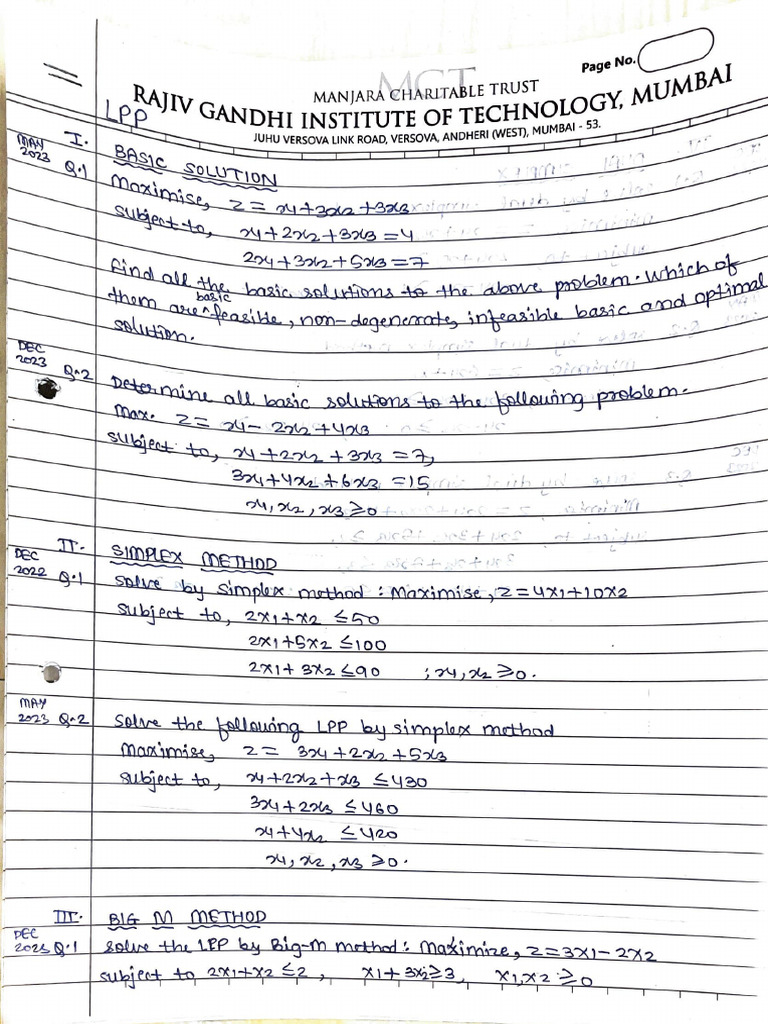 Page No.
MCT
MANJARA CHARITABLE TRUST
RAJIV GANDHI INSTITUTE OF TECHNOLOGY, MUMBAI
JUHU VERSOVA LINK ROAD, VERSOVA, ANDHERI (WEST), MUMBAI - 53.
LPP
I. BASIC SOLUTION
MAY 2023 Q.1 Maximise, z = x1+3x2+3x3
subject to, x1+2x2+3x3 = 4
2x1+3x2+5x3 = 7
Find all the basic solutions to the above problem. Which of
them are basic feasible, non-degenerate, infeasible basic and optimal
solution.
DEC 2023 Q.2 Determine all basic solutions to the following problem.
Max. z = x1 - 2x2 + 4x3
subject to, x1+2x2+3x3 = 7,
3x1+4x2+6x3 = 15
x1, x2, x3 ≥ 0
II. SIMPLEX METHOD
DEC 2022 Q.1 Solve by simplex method : Maximise, z = 4x1+10x2
subject to, 2x1+x2 ≤ 50
2x1+5x2 ≤ 100
2x1+3x2 ≤ 90 ; x1, x2 ≥ 0.
MAY 2023 Q.2 Solve the following LPP by simplex method
Maximise, z = 3x1+2x2+5x3
subject to, x1+2x2+x3 ≤ 430
3x1+2x3 ≤ 460
x1+4x2 ≤ 420
x1, x2, x3 ≥ 0.
III. BIG M METHOD
DEC Q.1 Solve the LPP by Big-M method : Maximize, z = 3x1 - 2x2
subject to 2x1+x2 ≤ 2, x1+3x2 ≥ 3, x1, x2 ≥ 0